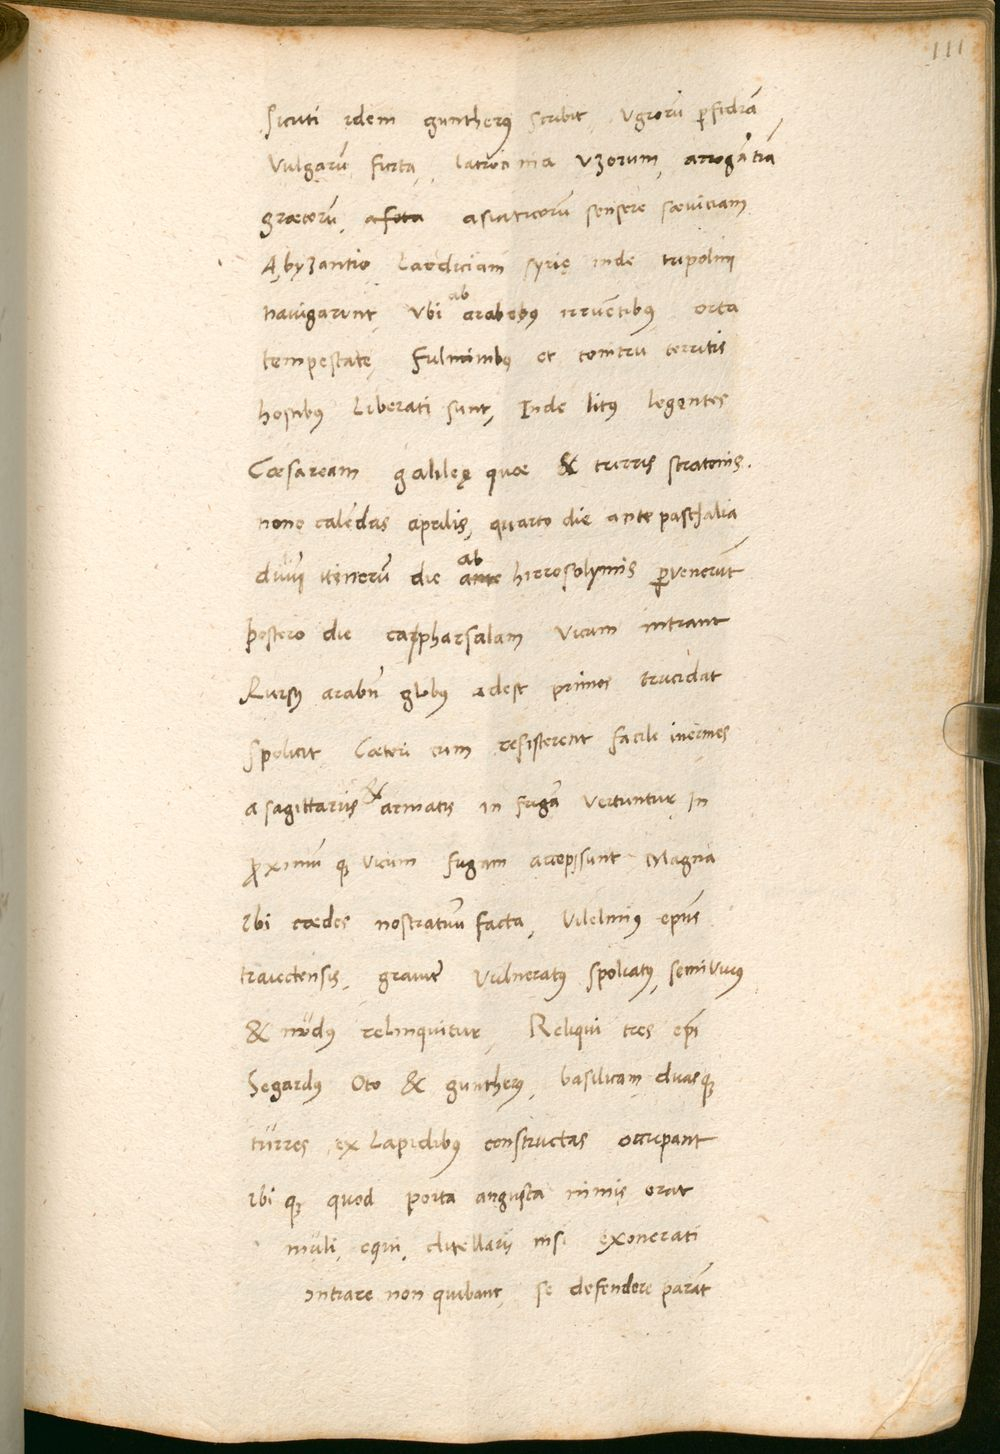 111
Sicuti idem guntherꝰ scribit, Vgrorū ꝑfidiā,
Vulgarū furta, latrocinia Vzorum, arrogātiā
græcorū, afota asiaticorū sensere sævitiam
A byzantio Laodiciam syrię inde tripolim
navigarunt, Vbi ab arabibꝰ irruētibꝰ orta
tempestate, Fulminibꝰ et tonitru territis
hostibꝰ Liberati sunt, Inde litꝰ legentes
Cæsaream galileę quæ & turris stratonis.
nono calēdas aprilis, quarto die ante paschalia
duūm itinerū die ante ab hierosolymis ꝑvenerūt
postero die capharsalam Vicum intrant
Rursꝰ arabū globꝰ adest primos trucidat
spoliat, Cæteri cum resisterent facile inermes
a sagittariis & armatis in fugā Vertuntur, In
proximūqꝫ Vicum fugam accepisunt Magna
ibi cædes nostratum facta, Vilelmꝰ ep̄us
traiectensis, gravitē Vulneratꝰ spoliatꝰ, semivivꝰ
& nŭdꝰ relinquitur, Reliqui tres ep̄i
Segardꝰ Oto & guntherꝰ, basilicam duasqꝫ
tŭrres ex Lapidibꝰ constructas occupant
ibi qꝫ quod porta angusta nimis erat
mŭli, equi, clitellarii nisi exonerati
intrare non quibant, se defendere parāt